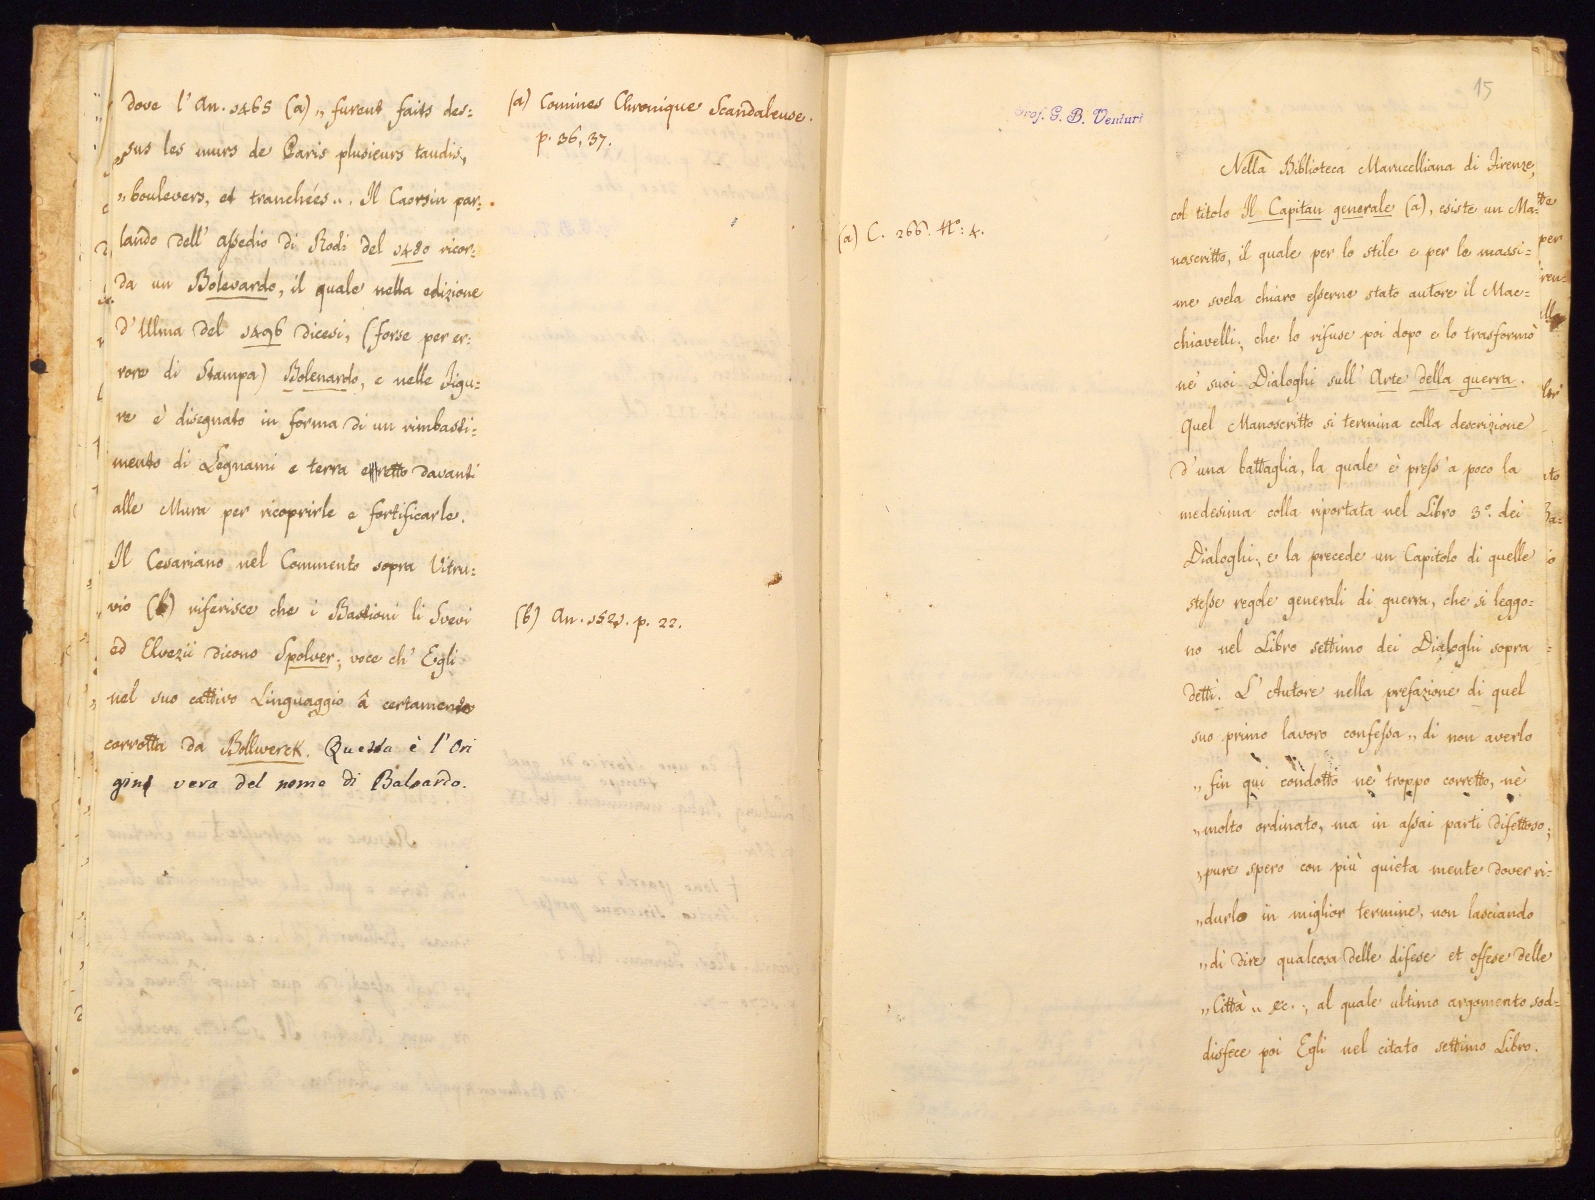 dove l'An. 1465 (a) „ furent faits des=
„sus les murs de Paris plusieurs taudis,
„boulevers, et tranchées „. Il Caorsin par=
lando dell'assedio di Rodi del 1480 ricor=
da un Bolevardo, il quale nella edizione
d'Ulma del 1496 dicesi, (forse per er=
rore di Stampa) Bolenardo, e nelle Figu=
re è disegnato in forma di un rimbasti=
mento di Legnami e terra eretto davanti
alle Mura per ricoprirle e fortificarle.
Il Cesariano nel Commento sopra Vitru=
vio (b) riferisce che i Bastioni li Svevi
ed Elvezii dicono Spolver; voce ch'Egli
nel suo cattivo Linguaggio à certamente
corrotta da Bollwerck. Questa è l'Ori
gine vera del nome di Baloardo.
(a) Comines Chronique Scandaleuse.
p. 36, 37.
(b) An. 1521. p. 22.
Prof. G. B. Venturi
15
(a) C. 266. N.º: 4.
Nella Biblioteca Marucelliana di Firenze,
col titolo Il Capitan generale (a), esiste un Ma=
noscritto, il quale per lo stile e per le massi=
me svela chiaro esserne stato autore il Mac=
chiavelli; che lo rifuse poi dopo e lo trasformò
ne' suoi Dialoghi sull'Arte della guerra.
Quel Manoscritto si termina colla descrizione
d'una battaglia, la quale è press'a poco la
medesima colla riportata nel Libro 3º. dei
Dialoghi; e la precede un Capitolo di quelle
stesse regole generali di guerra, che si leggo=
no nel Libro settimo dei Dialoghi sopra
detti. L'Autore nella prefazione di quel
suo primo lavoro confessa „ di non averlo
„ fin quì condotto nè troppo corretto, nè
„molto ordinato, ma in assai parti difettoso;
„pure spero con più quieta mente dover ri=
„durlo in miglior termine, non lasciando
„di dire qualcosa delle difese et offese delle
„Città „ ec.; al quale ultimo argomento sod=
disfece poi Egli nel citato settimo Libro.